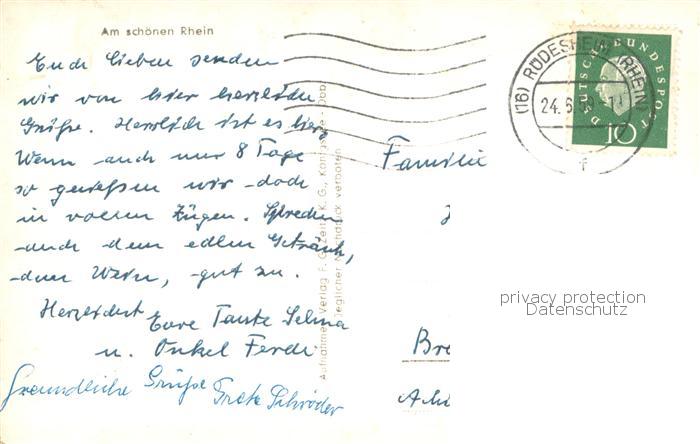 Am schönen Rhein
Euch Lieben senden
wir von hier herzliche
Grüße. Herrlich ist es hier
Wenn auch nur 8 Tage
so genießen wir doch
in vollen Zügen. Sprechen
auch dem edlen Getränk,
dem Wein, gut zu.
Herzlichst
Eure Tante Selma
u. Onkel Ferdi
Freundliche Grüße Grete Schröder
Aufnahme u. Verlag F. G. Zeitz K. G., Königsee
Jeglicher Nachdruck verboten
(16) RÜDESHEIM (RHEIN)
24.6.
f
DEUTSCHE BUNDESPOST
10
Familie
Bre
Achi
privacy protection
Datenschutz